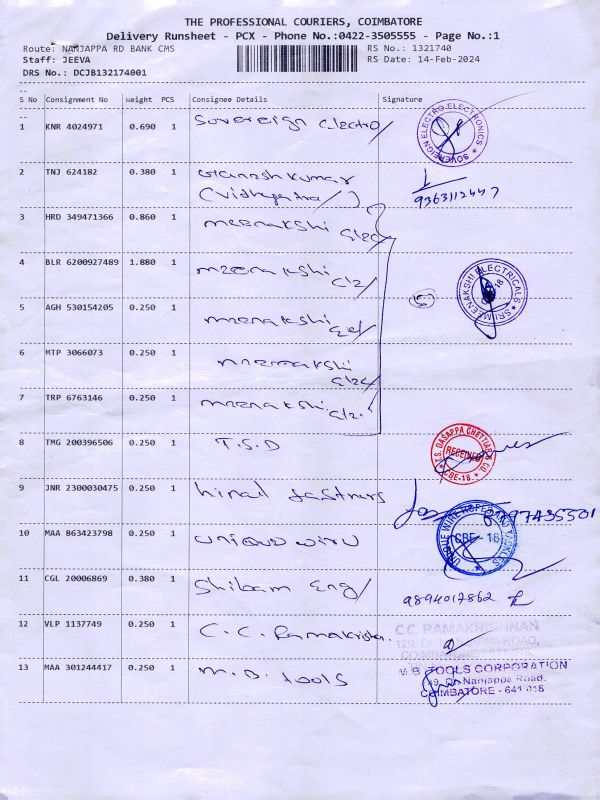 THE PROFESSIONAL COURIERS, COIMBATORE
Delivery Runsheet - PCX - Phone No.:0422-3505555 - Page No.:1
Route: NANJAPPA RD BANK CMS RS No.: 1321740
Staff: JEEVA RS Date: 14-Feb-2024
DRS No.: DCJB132174001
S No Consignment No Weight PCS Consignee Details Signature
1 KNR 4024971 0.690 1 Sovereign Electro
SOVEREIGN ELECTRO ELECTRONICS
2 TNJ 624182 0.380 1 Ganesh Kumar
(Vidhyendra)
3 HRD 349471366 0.860 1 Meenakshi
4 BLR 6200927489 1.880 1 Meenakshi
SRI MEENAKSHI ELECTRICALS
5 AGH 530154205 0.250 1 Meenakshi
6 MTP 3066073 0.250 1 Meenakshi
7 TRP 6763146 0.250 1 Meenakshi
8 TMG 200396506 0.250 1 T.S.D
T.S. DASAPPA CHETTIAR & CO.
RECEIVED
CBE-18
9 JNR 2300030475 0.250 1
10 MAA 863423798 0.250 1 Unique Wire
UNIQUE WIRE ROPE AND TACKLES
CBE - 18
11 CGL 20006869 0.380 1 Shibam Eng
9894017862
12 VLP 1137749 0.250 1 C.C. Ramakrishn
C.C. RAMAKRISHNAN
13 MAA 301244417 0.250 1 M.B. tools
M B TOOLS CORPORATION
Dr. Nanjappa Road,
COIMBATORE - 641 018